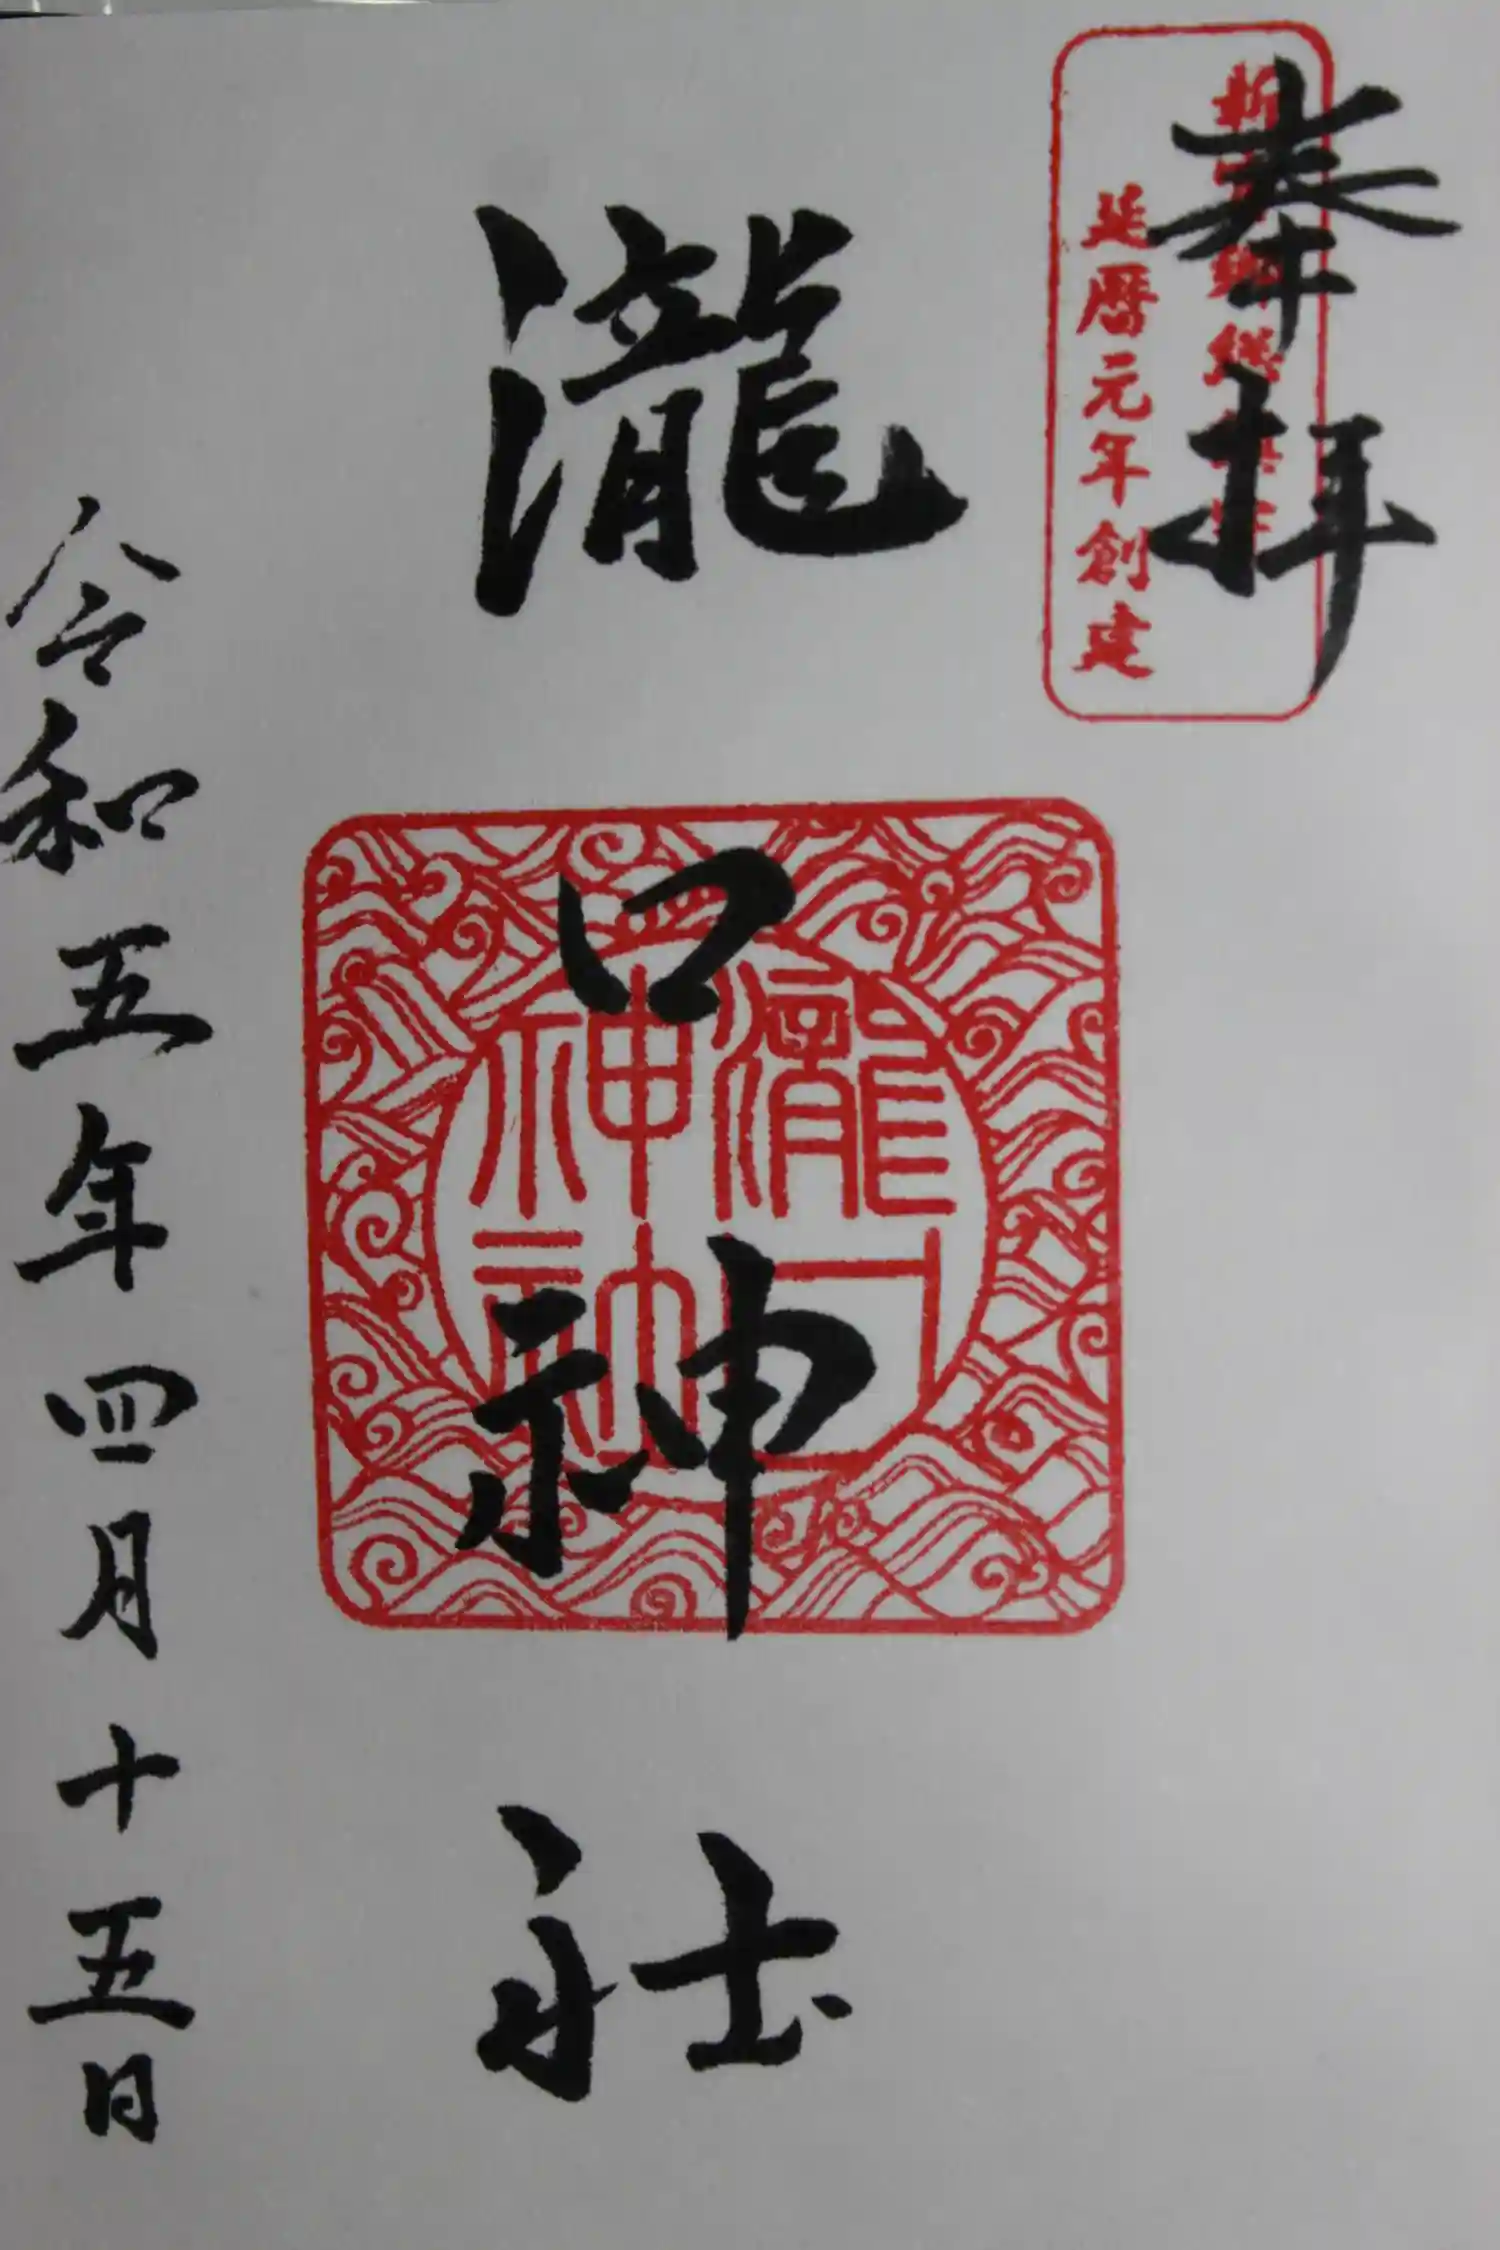 奉拝
延暦元年創建
瀧口神社
瀧口神社
令和五年四月十五日